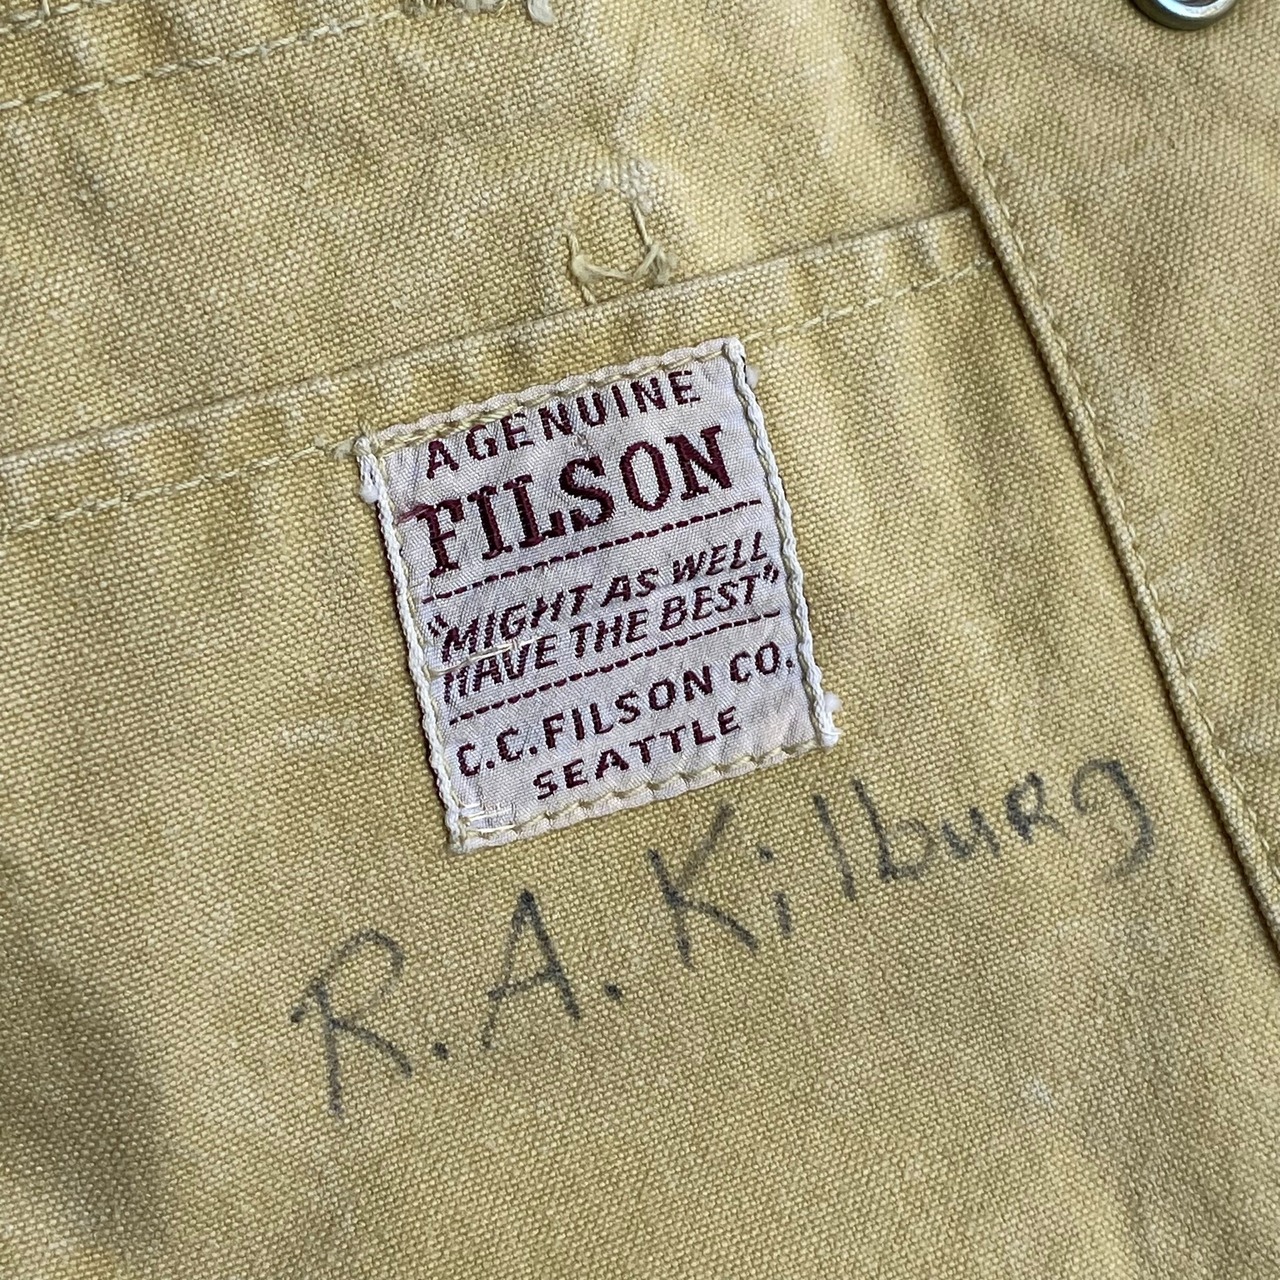 A GENUINE
FILSON
"MIGHT AS WELL
HAVE THE BEST"
C.C. FILSON CO.
SEATTLE
R.A. Kilburg